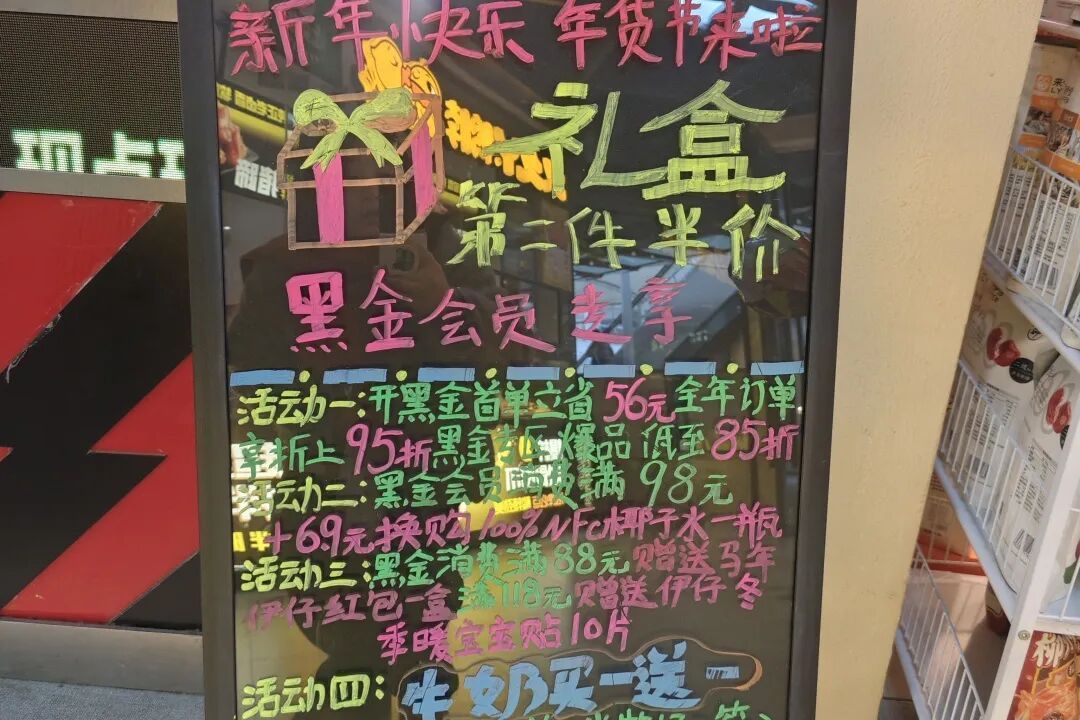 新年快乐 年货节来啦
礼盒
第二件半价
黑金会员专享
活动一:开黑金首单立省56元全年订单
享折上95折黑金专区爆品低至85折
活动二:黑金会员消费满98元
+69元换购100%NFC椰子水一瓶
活动三:黑金消费满88元赠送马年
伊仔红包一盒满118元赠送伊仔冬
季暖宝宝贴10片
活动四:牛奶买一送一
现点现